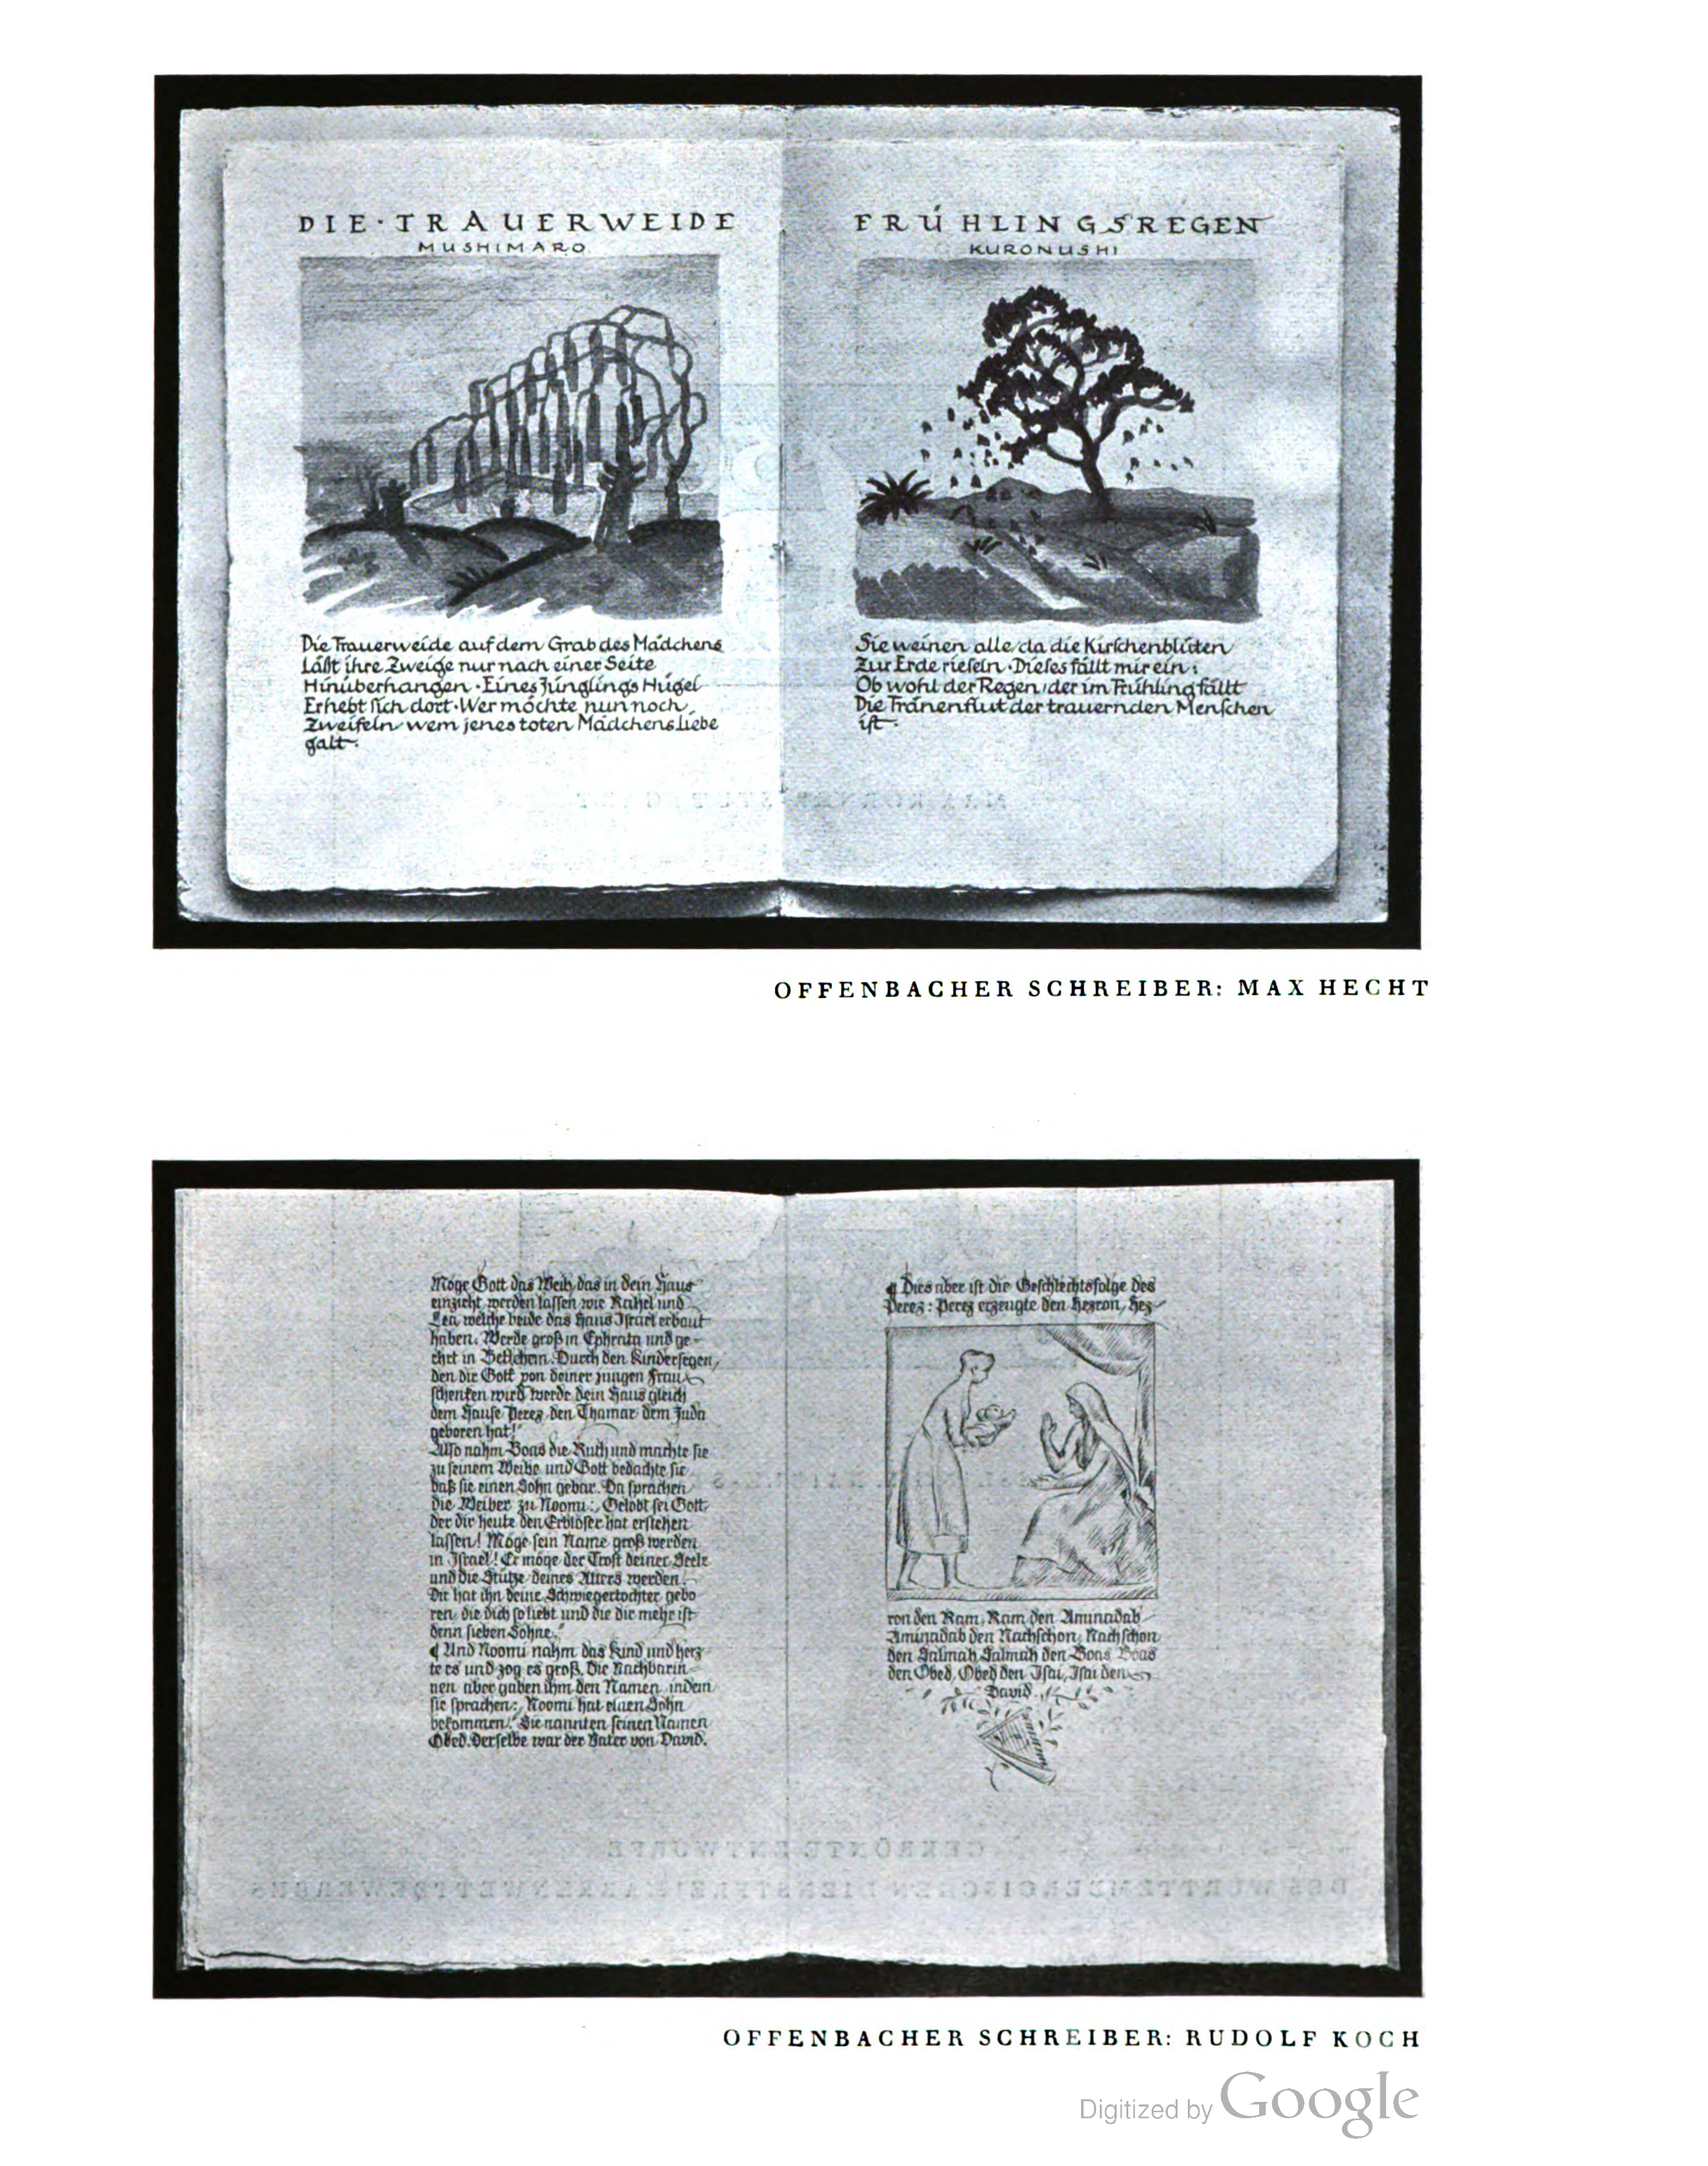 DIE·TRAUERWEIDE
MUSHIMARO
Die Trauerweide auf dem Grab des Mädchens
Läßt ihre Zweige nur nach einer Seite
Hinüberhangen·Eines Jünglings Hügel
Erhebt sich dort·Wer möchte nun noch
Zweifeln wem jenes toten Mädchens Liebe
galt·
FRÜHLINGSREGEN
KURONUSHI
Sie weinen alle/da die Kirschenblüten
Zur Erde rieseln·Dieses fällt mir ein:
Ob wohl der Regen/der im Frühling fällt
Die Tränenflut der trauernden Menschen
ist·
OFFENBACHER SCHREIBER: MAX HECHT
Möge Gott das Weib, das in dein Haus
einzieht, werden lassen wie Rahel und
Lea, welche beide das Haus Israel erbaut
haben. Werde groß in Ephrata und ge-
ehrt in Betlehem. Durch den Kindersegen,
den dir Gott von deiner jungen Frau
schenken wird werde dein Haus gleich
dem Hause Perez, den Thamar dem Juda
geboren hat!"
Also nahm Boas die Ruth und machte sie
zu seinem Weibe und Gott bedachte sie
daß sie einen Sohn gebar. Da sprachen
die Weiber zu Noomi: „Gelobt sei Gott,
der dir heute den Erblöser hat erstehen
lassen! Möge sein Name groß werden
in Israel! Er möge der Trost deiner Seele
und die Stütze deines Alters werden.
Dir hat ihn deine Schwiegertochter gebo
ren, die dich so liebt und die dir mehr ist
denn sieben Söhne."
¶ Und Noomi nahm das Kind und herz
te es und zog es groß. Die Nachbarin-
nen aber gaben ihm den Namen, indem
sie sprachen: „Noomi hat einen Sohn
bekommen." Sie nannten seinen Namen
Obed. Derselbe war der Vater von David.
¶ Dies aber ist die Geschlechtsfolge des
Perez: Perez erzeugte den Hezron, Hez-
ron den Ram, Ram den Aminadab
Aminadab den Nachschon, Nachschon
den Salmah, Salmah den Boas Boas
den Obed, Obed den Isai, Isai den
David.
OFFENBACHER SCHREIBER: RUDOLF KOCH
Digitized by Google